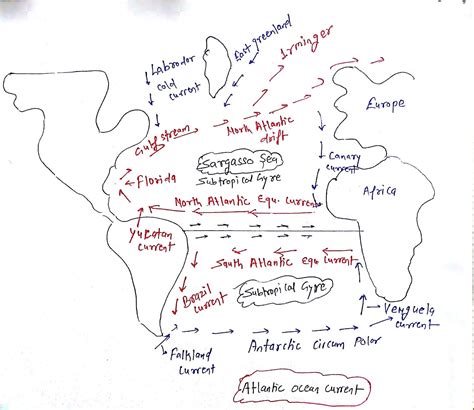 Labrador
cold
current
East greenland
Irminger
Europe
Gulf stream
North Atlantic
drift
Sargasso Sea
Subtropical Gyre
Canary
current
Florida
Africa
North Atlantic Equ. current
Yucatan
current
South Atlantic equ current
Brazil
current
Subtropical Gyre
Venguela
current
Falkland
current
Antarctic circum Polar
Atlantic ocean current